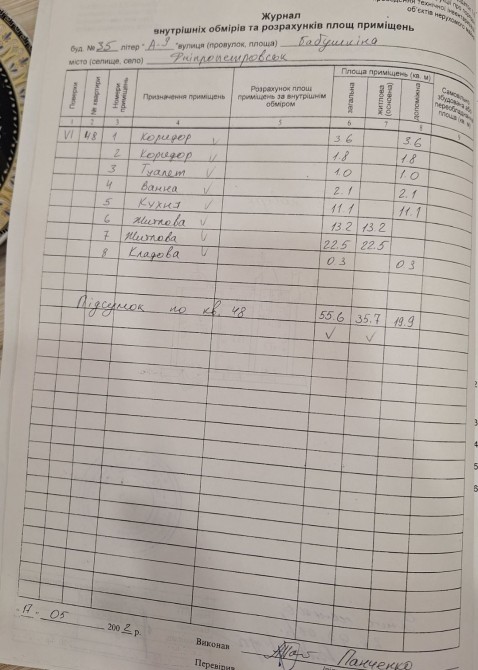 технічної інвентар
об'єктів нерухомого
Журнал
внутрішніх обмірів та розрахунків площ приміщень
буд. № 35 літер "А-9" вулиця (провулок, площа) Бабушкіна
місто (селище, село) Дніпропетровськ
Поверхи № квартири Номери приміщень Призначення приміщень Розрахунок площ приміщень за внутрішнім обміром Площа приміщень (кв. м) загальна житлова (основна) допоміжна
1 2 3 4 5 6 8
VI 48 1 Коридор 3.6 3.6
2 Коридор 1.8 1.8
3 Туалет 1.0 1.0
4 Ванна 2.1 2.1
5 Кухня 11.1 11.1
6 Житлова 13.2 13.2
7 Житлова 22.5 22.5
8 Кладова 0.3 0.3
Підсумок по кв. 48 55.6 35.7 19.9
17 05 2002 р.
Виконав Панченко
Перевірив